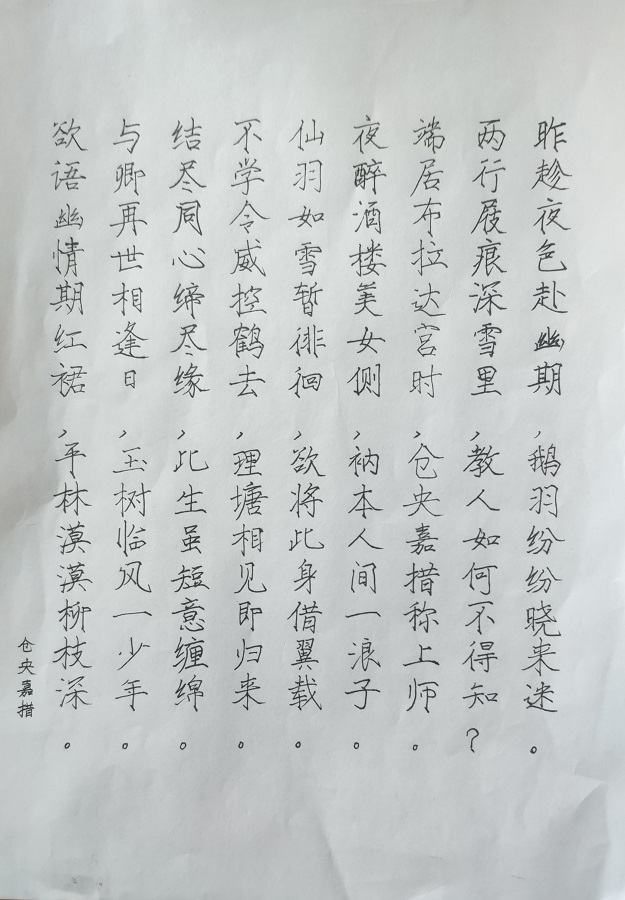 昨趁夜色赴幽期，鹅羽纷纷晓来迷。
两行屐痕深雪里，教人如何不得知？
端居布拉达宫时，仓央嘉措称上师。
夜醉酒楼美女侧，衲本人间一浪子。
仙羽如雪暂徘徊，欲将此身借翼载。
不学令威控鹤去，理塘相见即归来。
结尽同心缔尽缘，此生虽短意缠绵。
与卿再世相逢日，玉树临风一少年。
欲语幽情期红裙，平林漠漠柳枝深。
仓央嘉措